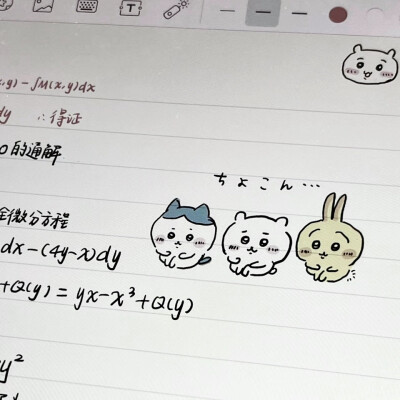 ,y) - ∫M(x,y)dx
dy ∴得证
0的通解
ちょこん...
微分方程
dx-(4y-x)dy
+Q(y) = yx-x³+Q(y)
y²